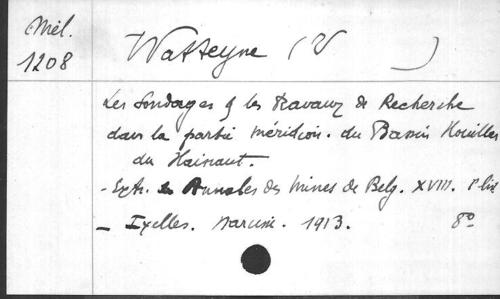 Mél.
1208
Watteyne (V )
Les Sondages & les travaux de Recherche
dans la partie méridion. du Bassin Houiller
du Hainaut.
- Extr. Annales des Mines de Belg. XVIII. 1e liv
- Ixelles. Narcisse. 1913. 8°